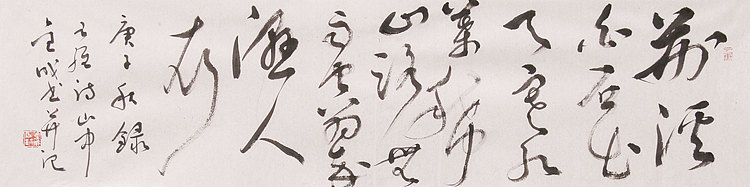 荆溪
白石出
天寒红
葉稀
山路元無
雨空翠
濕人
衣
庚子秋録
王维诗山中